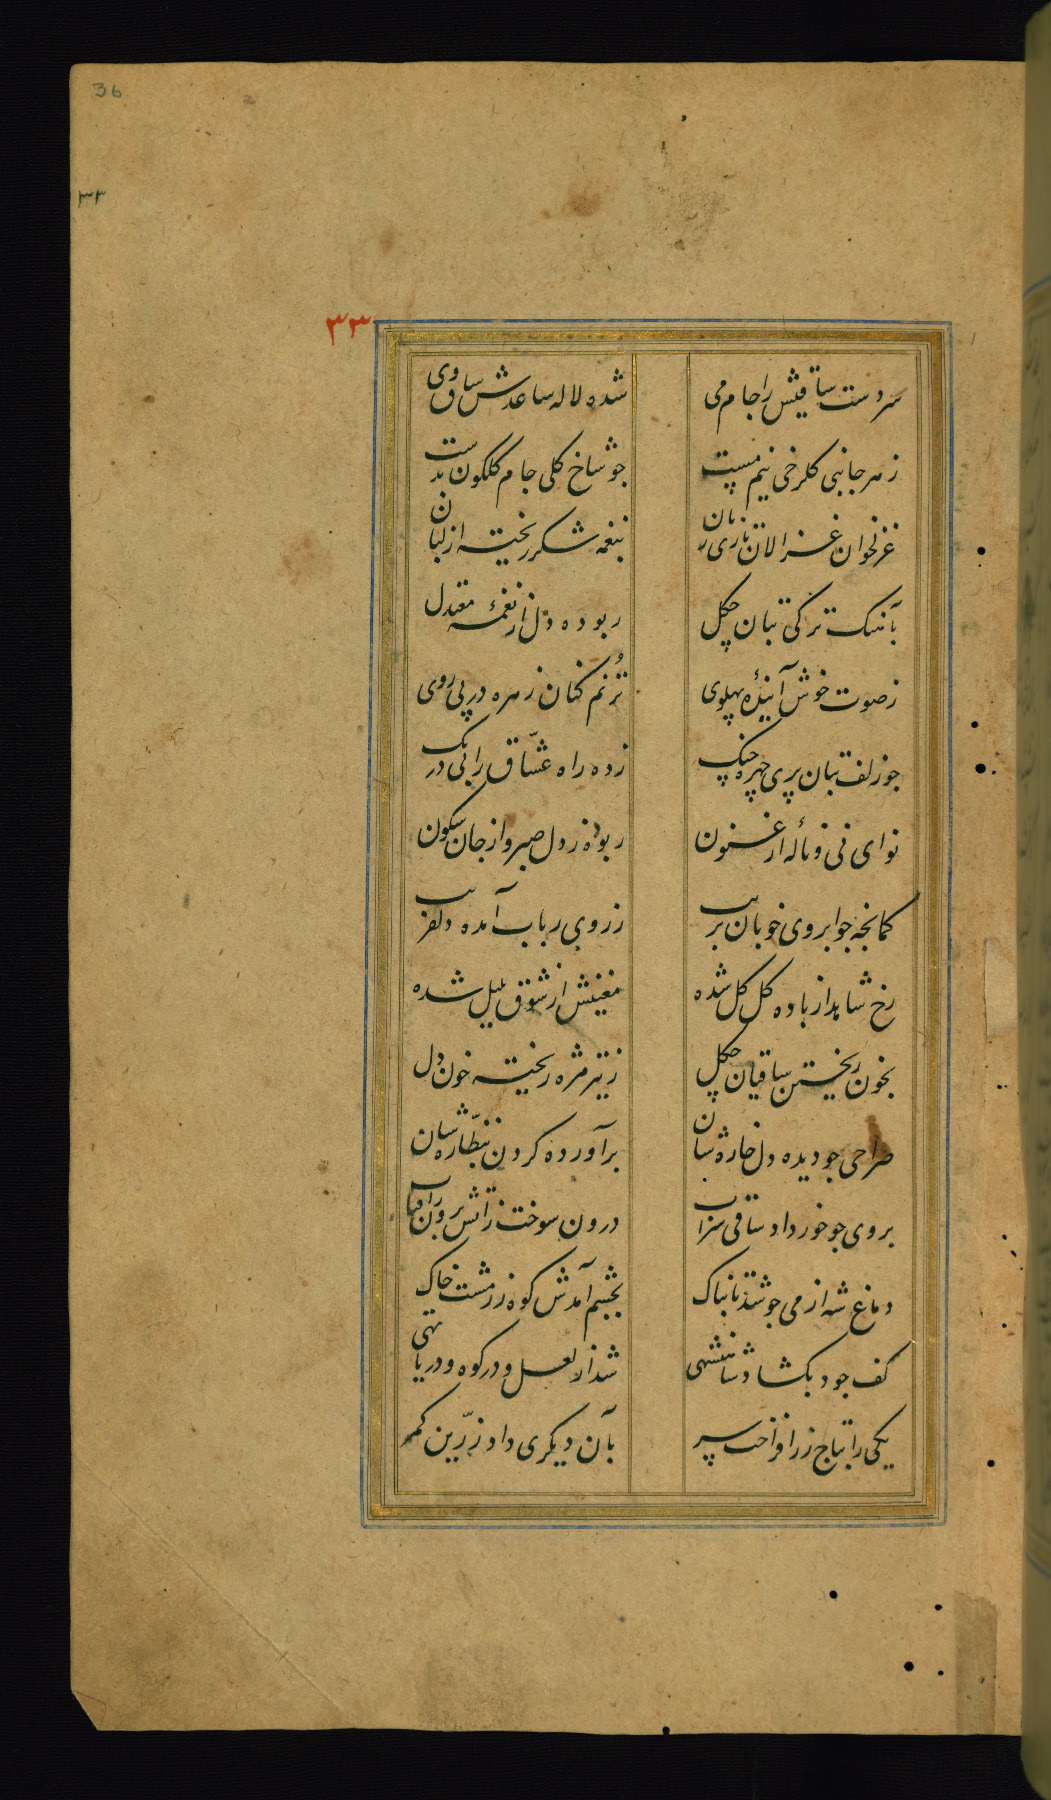 36
٣٣
٣٣
سردست ساقیش را جام می
شده لاله ساعدش ساق وی
زهر جانبی کلرخی نیم مست
جو شاخ کلی جام کلکون بدست
غزلخوان غزالان نازی زبان
بنغمه شکر ریخته از لبان
بآهنک ترکی بتان چکل
ربوده دل از نغمهٔ معتدل
زصوت خوش آیندهٔ پهلوی
ترنم کنان زهره در پی روی
جو زلف بتان پری چهره چنک
زده راه عشّاق را بی درنک
نوای نی و نالهٔ ارغنون
ربوده زدل صبر و از جان سکون
کمانجه جو ابروی خوبان بزیب
زروی رباب آمده دلفریب
رخ شاهد از باده کل کل شده
مغنیش از شوق بلبل شده
بخون ریختن ساقیان چکل
زتیر مژه ریخته خون دل
صراحی جو دیده دل خاره شان
برآورده کردن بنظّاره شان
بروی جو خور داد ساقی شراب
درون سوخت زآتش برون زآفتاب
دماغ شه از می جو شد تابناک
بچشم آمدش کوه زر مشت خاک
کف جود بکشاد شاهنشهی
شد از لعل و در کوه و دریا تهی
یکی را بتاج زر افراخت سر
بآن دیکری داد زرّین کمر